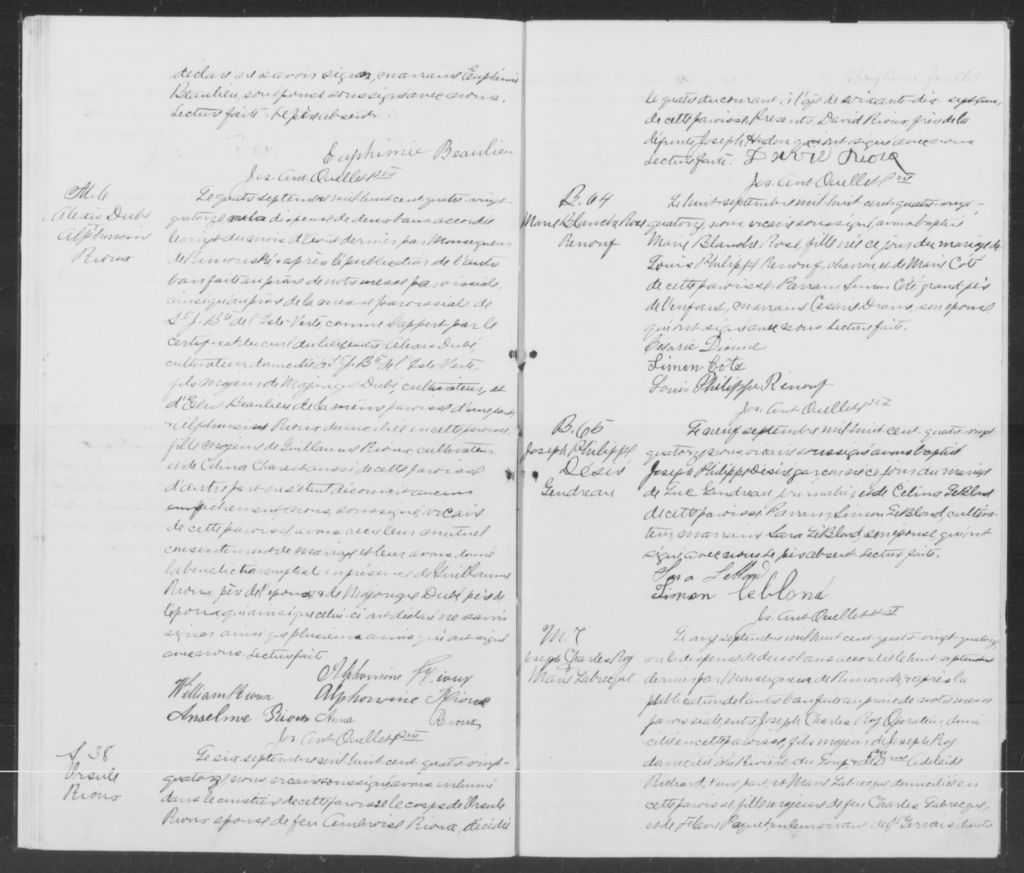 déclaré ne savoir signer, marraine Euphémie
Beaulieu, son épouse soussignée avec nous.
Lecture faite. Le père absent.
Euphimie Beaulieu
Jos. Ant. Ouellet Ptre
M. 6
Alexis Dubé
Alphonsine
Rioux
Le quatre septembre mil huit cent quatre-vingt-
quatorze vu la dispense de deux bans accordée
le vingt du mois d'août dernier par Monseigneur
de Rimouski après la publication de l'autre
ban faite au prône de notre messe paroissiale,
ainsi qu'au prône de la messe paroissiale de
St. J. Bte de l'Isle-Verte comme il appert par le
certificat du curé du lieu entre Alexis Dubé,
cultivateur domicilié à St. J. Bte de l'Isle Verte,
fils majeur de Majorique Dubé, cultivateur, et
d'Elise Beaulieu de la même paroisse d'une part
Alphonsine Rioux domiciliée en cette paroisse
fille majeure de Guillaume Rioux, cultivateur
et de Célina Charest aussi de cette paroisse
d'autre part ne s'étant découvert aucun
empêchement nous soussigné vicaire
de cette paroisse avons reçu leur mutuel
consentement de mariage et leur avons donné
la bénédiction nuptiale en présence de Guillaume
Rioux, père de l'épouse & de Majorique Dubé père de
l'époux qui ainsi que celui-ci ont déclaré ne savoir
signer ainsi que plusieurs amis qui ont signé
avec nous. Lecture faite
Alphonsine Rioux
William Rioux Alphonsine Rioux
Anselme Rioux Anna Rioux
Jos. Ant. Ouellet Ptre
S. 38
Ursule
Rioux
Le six septembre mil huit cent quatre vingt-
quatorze nous vicaire soussigné avons inhumé
dans le cimetière de cette paroisse le corps de Ursule
Rioux épouse de feu Ambroise Rioux, décédée
le quatre du courant à l'âge de soixante-dix sept ans,
de cette paroisse. Présents, David Rioux, frère de la
défunte, Joseph Hudon qui ont signé avec nous
Lecture faite. David Rioux
Jos. Ant. Ouellet Ptre
B. 64
Marie Blanche Rose
Renouf
Le huit septembre mil huit cent quatre-vingt-
quatorze nous vicaire soussigné avons baptisé
Marie Blanche Rose, fille née ce jour du mariage de
Louis Philippe Renouf, charron et de Marie Coté
de cette paroisse. Parrain Simon Coté, grand père
de l'enfant, marraine Césarie Dionne, son épouse
qui ont signé avec nous. Lecture faite.
Cesarie Dionne
Simon Cote
Louis Philippe Renouf
Jos. Ant. Ouellet Ptre
B. 65
Joseph Philippe
Désiré
Gendreau
Le neuf septembre mil huit cent quatre vingt
quatorze nous vicaire soussigné avons baptisé
Joseph Philippe Désiré, garçon né ce jour du mariage
de Luc Gendreau journalier et de Célina LeBlond
de cette paroisse. Parrain Simon LeBlond, cultiva-
teur, marraine Sara LeBlond, son épouse, qui ont
signé avec nous. Le père absent. Lecture faite.
Sara Leblond
Simon leblond
Jos. Ant. Ouellet Ptre
M. 7
Joseph Charles Roy
Marie Labrecque
Le onze septembre mil huit cent quatre-vingt quatorze,
vu la dispense de deux bans accordée le huit septembre
dernier par Monseigneur de Rimouski après la
publication de l'autre ban faite au prône de notre messe
paroissiale, entre Joseph Charles Roy Opérateur, domi-
cilié en cette paroisse, fils majeur de Joseph Roy
domicilié à la Rivière du Loup et de Adelaide
Richard, d'une part et Marie Labrecque domiciliée en
cette paroisse, fille majeure de feu Charles Labrecque
et de Flavie Paquet, en leur vivant de St. Gervais d'autre